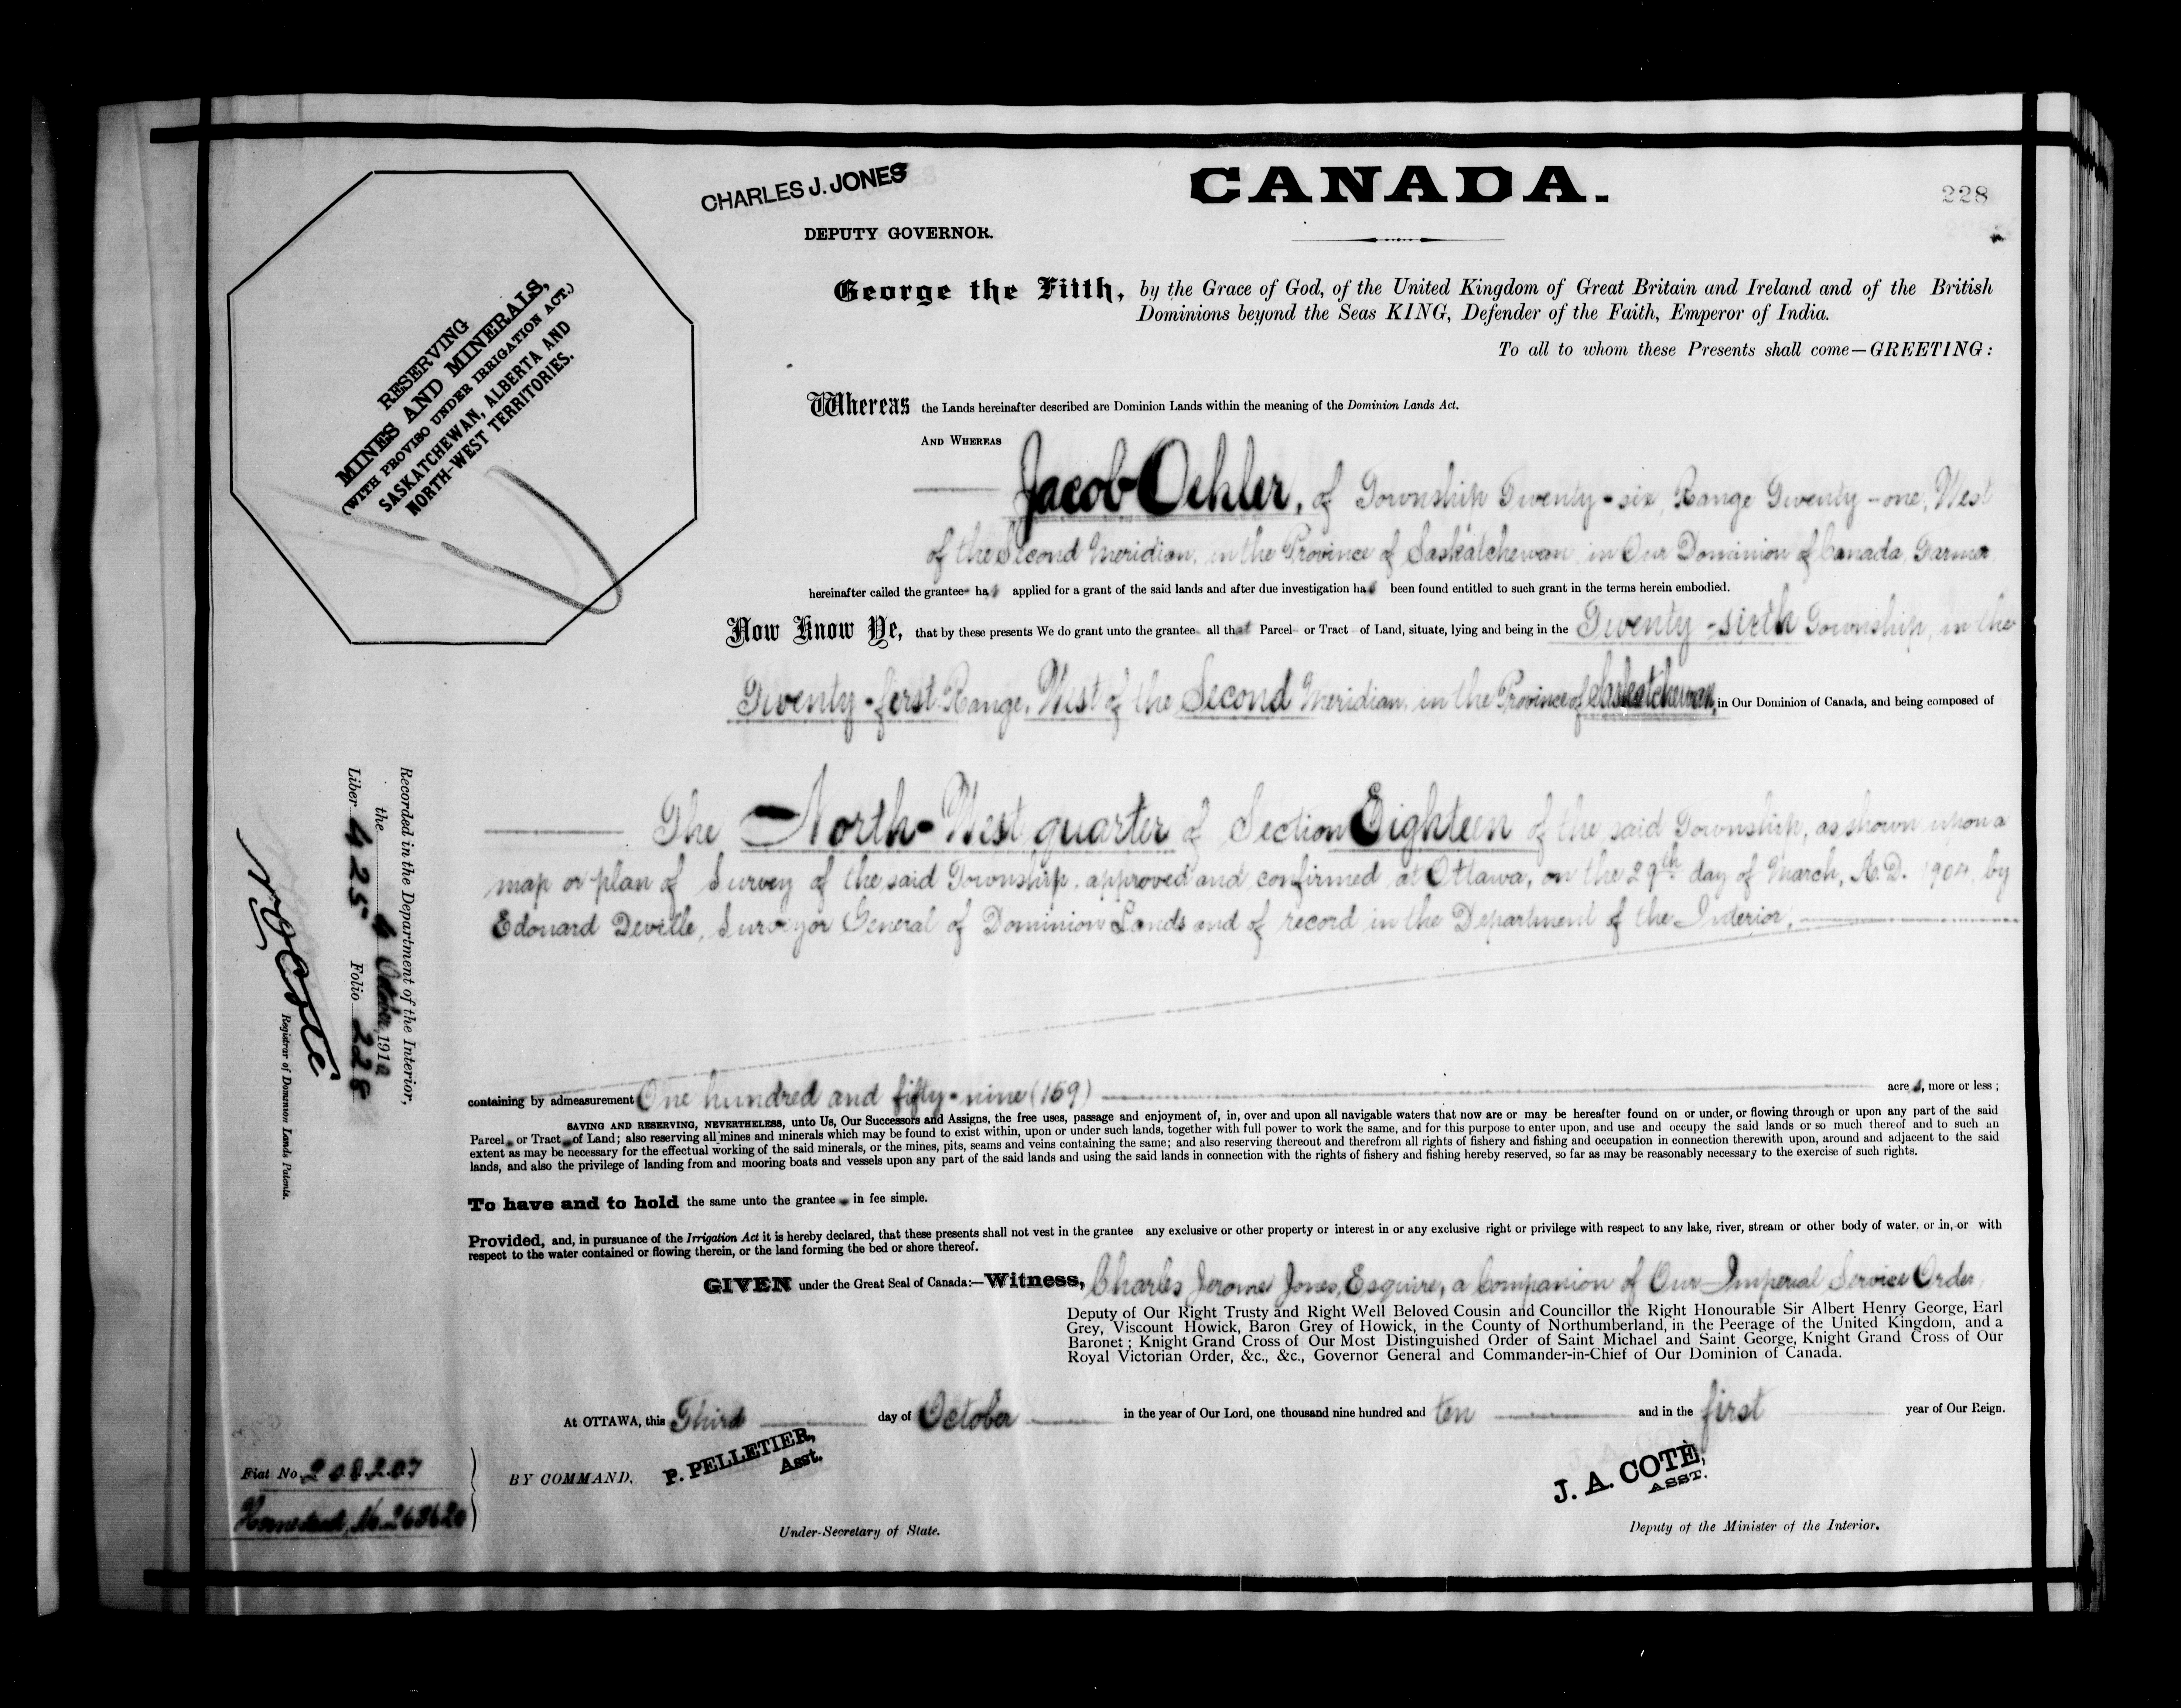 CHARLES J. JONES
DEPUTY GOVERNOR.
CANADA.
228
RESERVING
MINES AND MINERALS,
(WITH PROVISO UNDER IRRIGATION ACT.)
SASKATCHEWAN, ALBERTA AND
NORTH-WEST TERRITORIES.
George the Fifth, by the Grace of God, of the United Kingdom of Great Britain and Ireland and of the British
Dominions beyond the Seas KING, Defender of the Faith, Emperor of India.
To all to whom these Presents shall come—GREETING:
Whereas the Lands hereinafter described are Dominion Lands within the meaning of the Dominion Lands Act.
AND WHEREAS
Jacob Oehler, of Township Twenty-six, Range Twenty-one, West
of the Second Meridian, in the Province of Saskatchewan, in Our Dominion of Canada, Farmer
hereinafter called the grantee has applied for a grant of the said lands and after due investigation has been found entitled to such grant in the terms herein embodied.
Now Know Ye, that by these presents We do grant unto the grantee all that Parcel or Tract of Land, situate, lying and being in the Twenty-sixth Township, in the
Twenty-first Range, West of the Second Meridian, in the Province of Saskatchewan, in Our Dominion of Canada, and being composed of
The North-West quarter of Section Eighteen of the said Township, as shown upon a
map or plan of Survey of the said Township, approved and confirmed at Ottawa, on the 29th day of March, A.D. 1904, by
Edouard Deville, Surveyor General of Dominion Lands and of record in the Department of the Interior,
containing by admeasurement One hundred and fifty-nine (159) acres, more or less;
SAVING AND RESERVING, NEVERTHELESS, unto Us, Our Successors and Assigns, the free uses, passage and enjoyment of, in, over and upon all navigable waters that now are or may be hereafter found on or under, or flowing through or upon any part of the said
Parcel or Tract of Land; also reserving all mines and minerals which may be found to exist within, upon or under such lands, together with full power to work the same, and for this purpose to enter upon, and use and occupy the said lands or so much thereof and to such an
extent as may be necessary for the effectual working of the said minerals, or the mines, pits, seams and veins containing the same; and also reserving thereout and therefrom all rights of fishery and fishing and occupation in connection therewith upon, around and adjacent to the said
lands, and also the privilege of landing from and mooring boats and vessels upon any part of the said lands and using the said lands in connection with the rights of fishery and fishing hereby reserved, so far as may be reasonably necessary to the exercise of such rights.
To have and to hold the same unto the grantee in fee simple.
Provided, and, in pursuance of the Irrigation Act it is hereby declared, that these presents shall not vest in the grantee any exclusive or other property or interest in or any exclusive right or privilege with respect to any lake, river, stream or other body of water, or in, or with
respect to the water contained or flowing therein, or the land forming the bed or shore thereof.
GIVEN under the Great Seal of Canada:—Witness, Charles Jerome Jones, Esquire, a Companion of Our Imperial Service Order,
Deputy of Our Right Trusty and Right Well Beloved Cousin and Councillor the Right Honourable Sir Albert Henry George, Earl
Grey, Viscount Howick, Baron Grey of Howick, in the County of Northumberland, in the Peerage of the United Kingdom, and a
Baronet; Knight Grand Cross of Our Most Distinguished Order of Saint Michael and Saint George, Knight Grand Cross of Our
Royal Victorian Order, &c., &c., Governor General and Commander-in-Chief of Our Dominion of Canada.
At OTTAWA, this Third day of October in the year of Our Lord, one thousand nine hundred and ten and in the first year of Our Reign.
BY COMMAND,
P. PELLETIER,
Asst.
Under-Secretary of State.
J. A. COTÉ,
ASST.
Deputy of the Minister of the Interior.
Recorded in the Department of the Interior,
the 4 October, 191
Liber 425 Folio 228
Registrar of Dominion Lands Patents.
Fiat No. 208207
Homestead, No. 263620